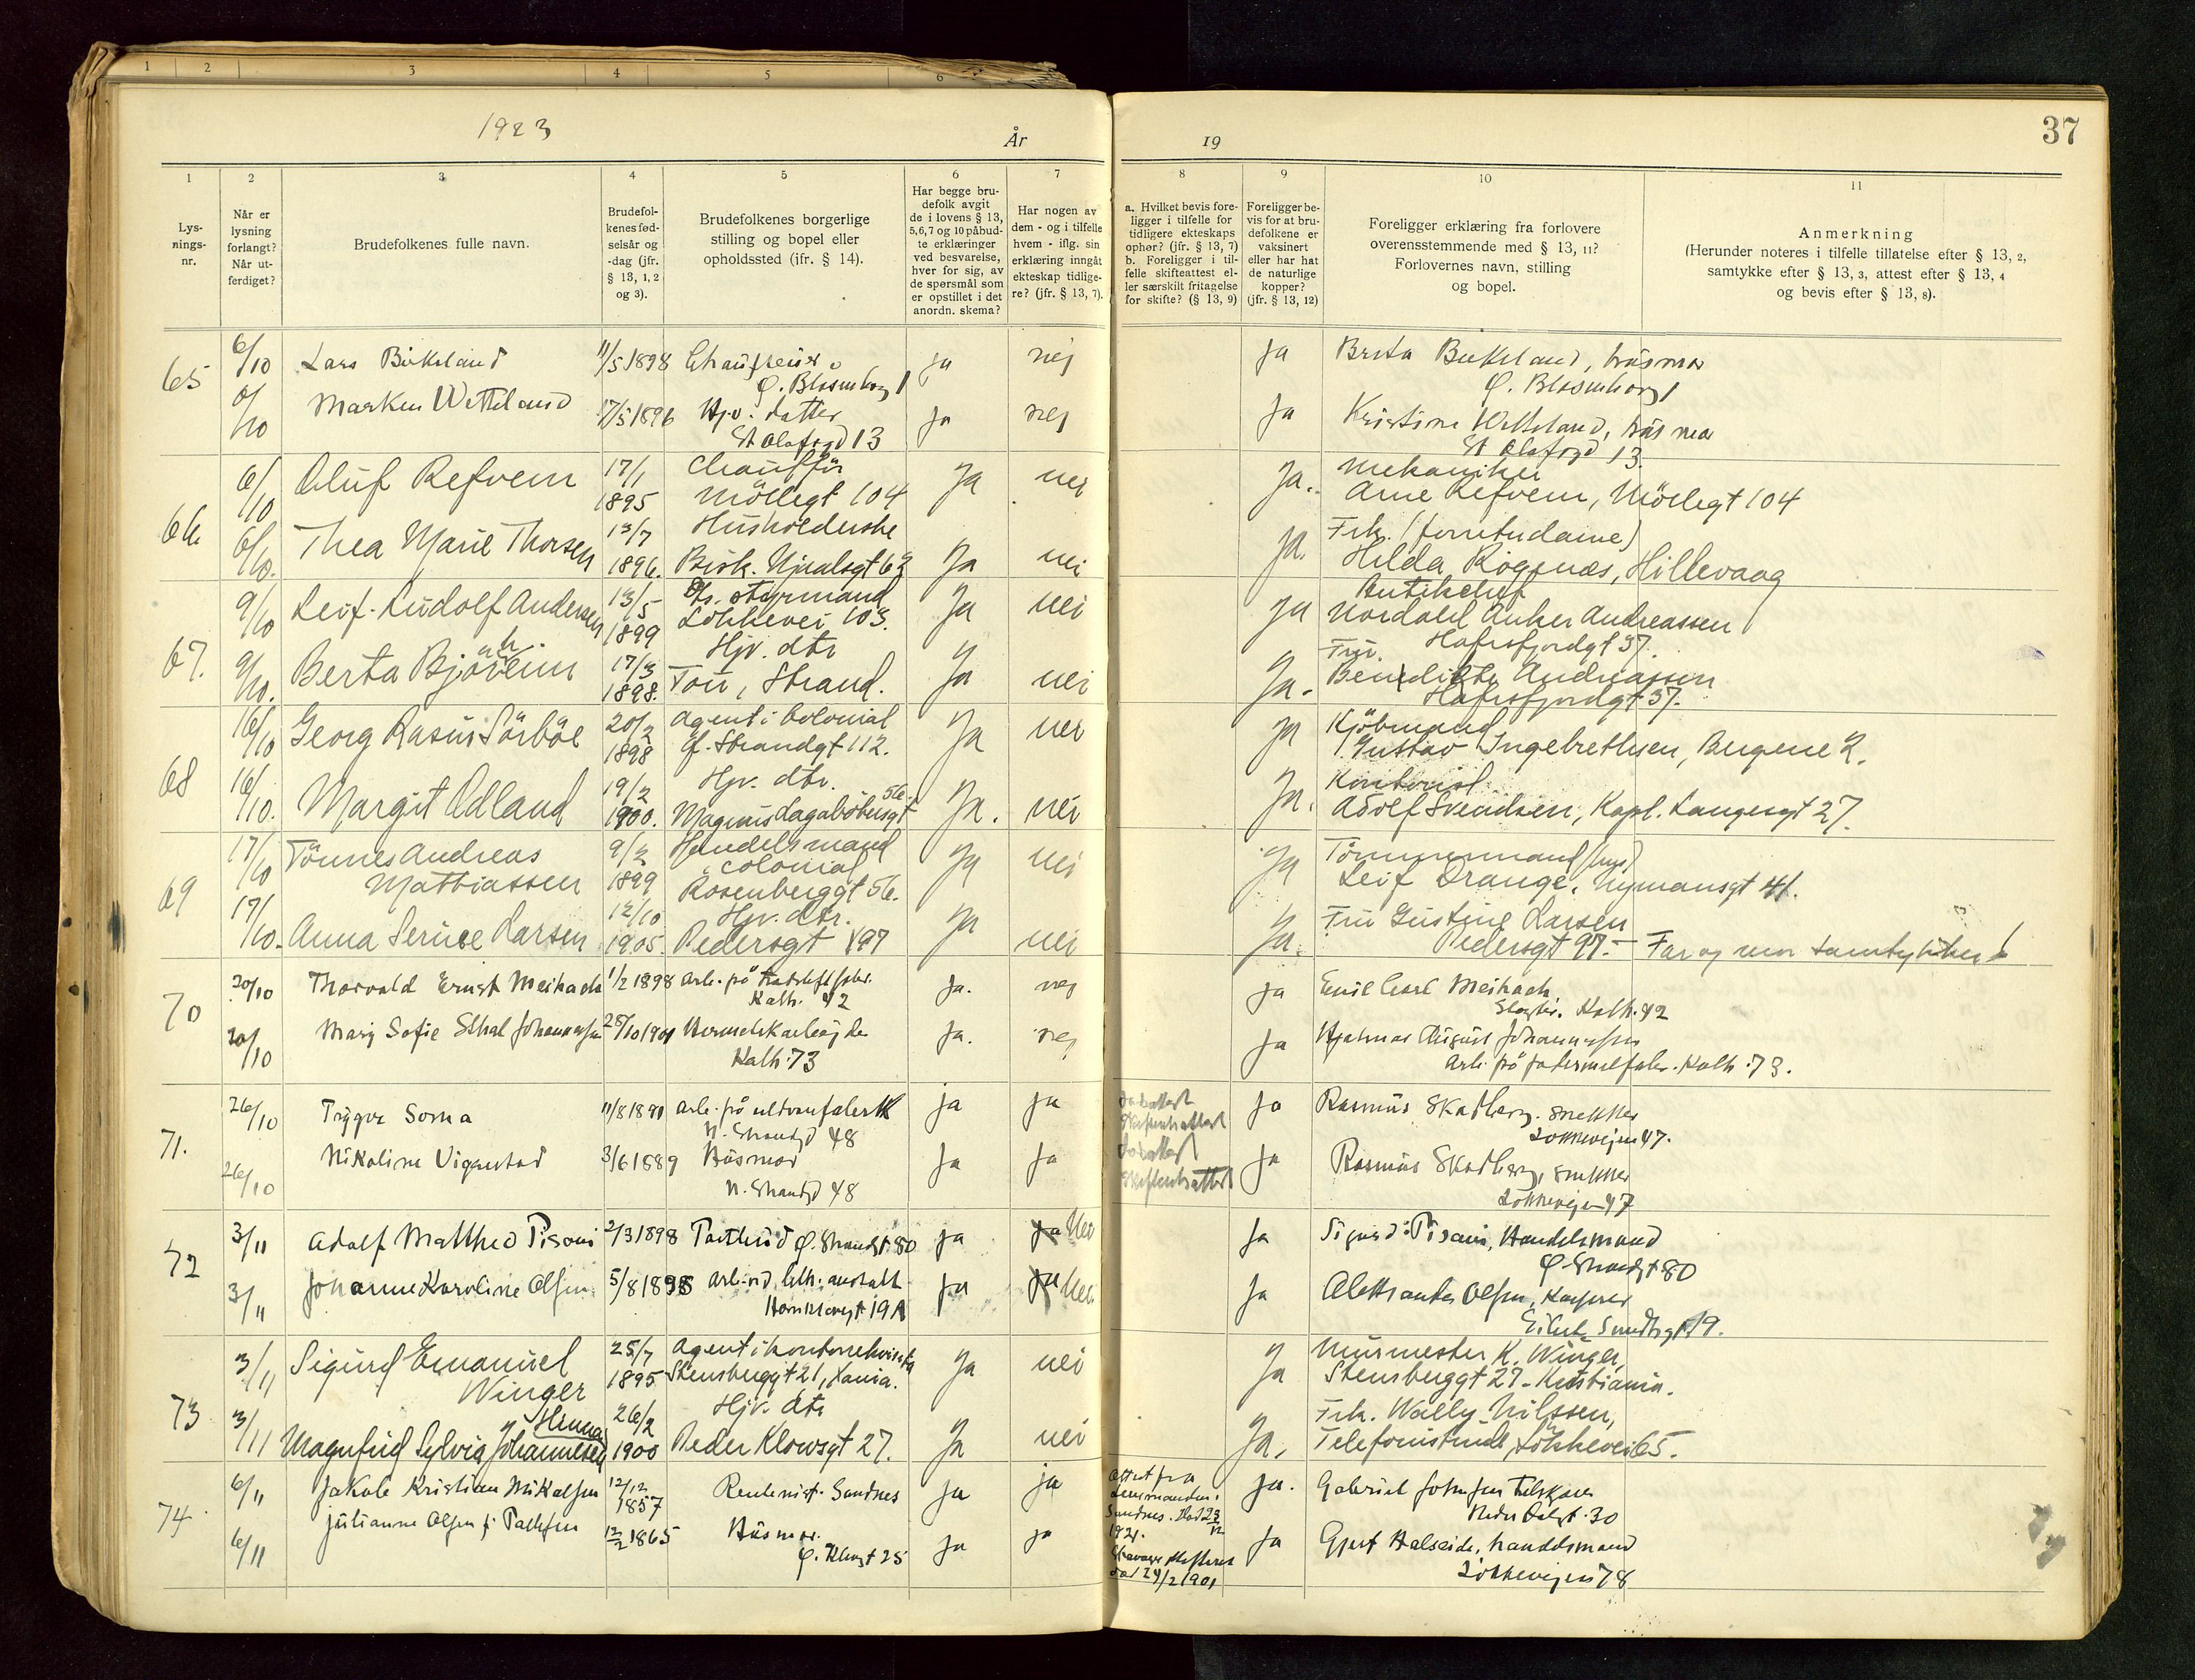 1 2 3 4 5 6
1923
År
19
37
1 2 3 4 5 6 7 8 9 10 11
Lys-
nings-
nr.
Når er
lysning
forlangt?
Når ut-
ferdiget?
Brudefolkenes fulle navn.
Brudefol-
kenes fød-
selsår og
-dag (jfr.
§ 13, 1, 2
og 3).
Brudefolkenes borgerlige
stilling og bopel eller
opholdssted (jfr. § 14).
Har begge bru-
defolk avgit
de i lovens § 13,
5, 6, 7 og 10 påbud-
te erklæringer
ved besvarelse,
hver for sig, av
de spørsmål som
er opstillet i det
anordn. skema?
Har nogen av
dem - og i tilfelle
hvem - iflg. sin
erklæring inngåt
ekteskap tidlige-
re? (jfr. § 13, 7).
a. Hvilket bevis fore-
ligger i tilfelle for
tidligere ekteskaps
ophør? (jfr. § 13, 7)
b. Foreligger i til-
felle skifteattest el-
ler særskilt fritagelse
for skifte? (§ 13, 9)
Foreligger be-
vis for at bru-
defolkene er
vaksinert
eller har hat
de naturlige
kopper?
(jfr. § 13, 12)
Foreligger erklæring fra forlovere
overensstemmende med § 13, 11?
Forlovernes navn, stilling
og bopel.
Anmerkning
(Herunder noteres i tilfelle tillatelse efter § 13, 2,
samtykke efter § 13, 3, attest efter § 13, 4
og bevis efter § 13, 8).
65 6/10 Lars Birkeland 11/5 1898 Chauffeur ja nej ja Brita Birkeland, husmor
Ø. Blasenborg 1 Ø. Blasenborg 1
6/10 Marken Wetteland 17/5 1896 Hjv. datter ja nej ja Kristine Wetteland, husmor
St Olafsgd 13 St Olafsgd 13.
66 6/10 Oluf Refvem 17/1 1895 Chauffør Ja nei Ja. mekaniker
Möllegt 104 Arne Refvem, Möllegt 104
6/10. Thea Marie Thorsen 13/7 1896. Husholderske Ja nei Ja. Frk.
Bisk. Njaalsgt 62 Hilda Rogenæs, Hillevaag
67. 9/10 Leif Ludolf Andersen 13/5 1899 styrmand Ja nei Ja Butikchef
Lökkevei 103. Nordahl Anker Andreassen
Hafrsfjordgt 37.
9/10. Berta Björeim 17/3 1898. Hjv. dtr Ja nei Ja. Fru
Tou, Strand. Benedikte Andreassen
Hafrsfjordgt 37.
68 16/10 Georg Rasus Sörböe 20/2 1898 agent i colonial Ja nei Ja Kjöbmand
Ø. Strandgt 112. Gustav Ingebrethsen, Bergene 2.
16/10. Margit Ødland 19/2 1900. Hjv. dtr. Ja. nei Ja. Kontorist
Magnus Lagabötersgt 56. Adolf Svendsen, Kapt. Langesgt 27.
69 17/10 Tönnes Andreas 9/2 1899 Handelsmand Ja nei Ja Tömmermand
Mathiassen colonial
Rosenberggt 56. Leif Orange, Nymansgt 41.
17/10. Anna Serine Larsen 12/10 1905. Hjv. dtr. Ja nei Ja. Fru Gustine Larsen
Pedersgt 97 Pedersgt 97. Far og mor samtykker
70 20/10 Thorvald Ernst Meihack 1/2 1898 Kath. 42 Ja. nej ja Emil Carl Meihack
Kath. 42
20/10 Mary Sofie Ethel Johannessen 28/10 1901 Hermetikarbejder Ja. nej ja Hjalmar August Johannessen
Kath. 73 Kath. 73.
71. 26/10 Trygve Soma 11/8 1890 arb. på uldvarefabrikk ja ja ja Rasmus Skadberg. snekker
N. Strandgd 48 Løkkevejen 47.
26/10 Nikoline Vigrestad 3/6 1889 Husmor ja ja Skifteattest ja Rasmus Skadberg, snekker
N. Strandgd 48 Løkkevejen 47
72 3/11 Adolf Mattheo Pisani 2/3 1898 Postbud Ø. Strandgt 80 ja ja Nei ja Sigurd Pisani, Handelsmand
Ø. Strandgt 80
3/11 Johanne Karoline Olsen 5/8 1898 arb. ved lith. anstalt ja ja Nei ja Aleksander Olsen,
19A Eilert Smithsgt 19.
73 3/11 Sigurd Emanuel 25/7 1895 Agent i kontorrekvisita Ja nei Ja Murmester K. Winger,
Winger Stensberggt 21, Xania. Stensberggt 27. Kristiania.
3/11 Magnfrid Sylvia Johannesen 26/2 1900 Hjv. dtr Ja nei Ja. Frk. Wally Nilssen,
Peder Klowsgt 27. Telefonistinde, Lökkevei 65.
74 6/11 Jakob Kristian Mikalsen 12/12 1857 Rentenist. Sandnes ja ja Attest fra ja. Gabriel Johnsen
lensmanden i
Sandnes.
30
6/11 Julianne Olsen f. Paulsen 12/2 1865 Husmor. ja ja 1921. ja Gjert Halseide, handelsmand
25 24/2 1901 Løkkevejen 78